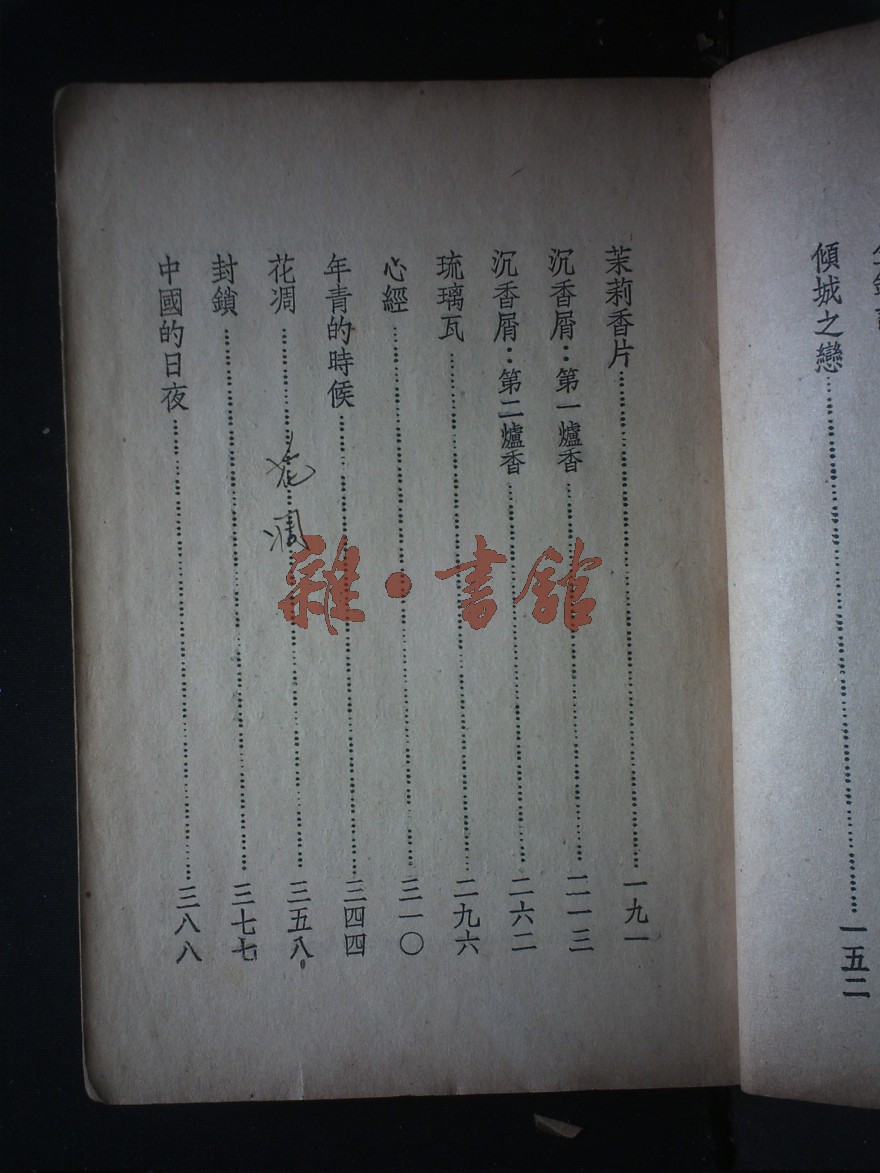 傾城之戀……一五二
茉莉香片……一九一
沉香屑：第一爐香……二一三
沉香屑：第二爐香……二六二
琉璃瓦……二九六
心經……三一〇
年青的時候……三四四
花凋……三五八
封鎖……三七七
中國的日夜……三八八
花凋
雜·書館